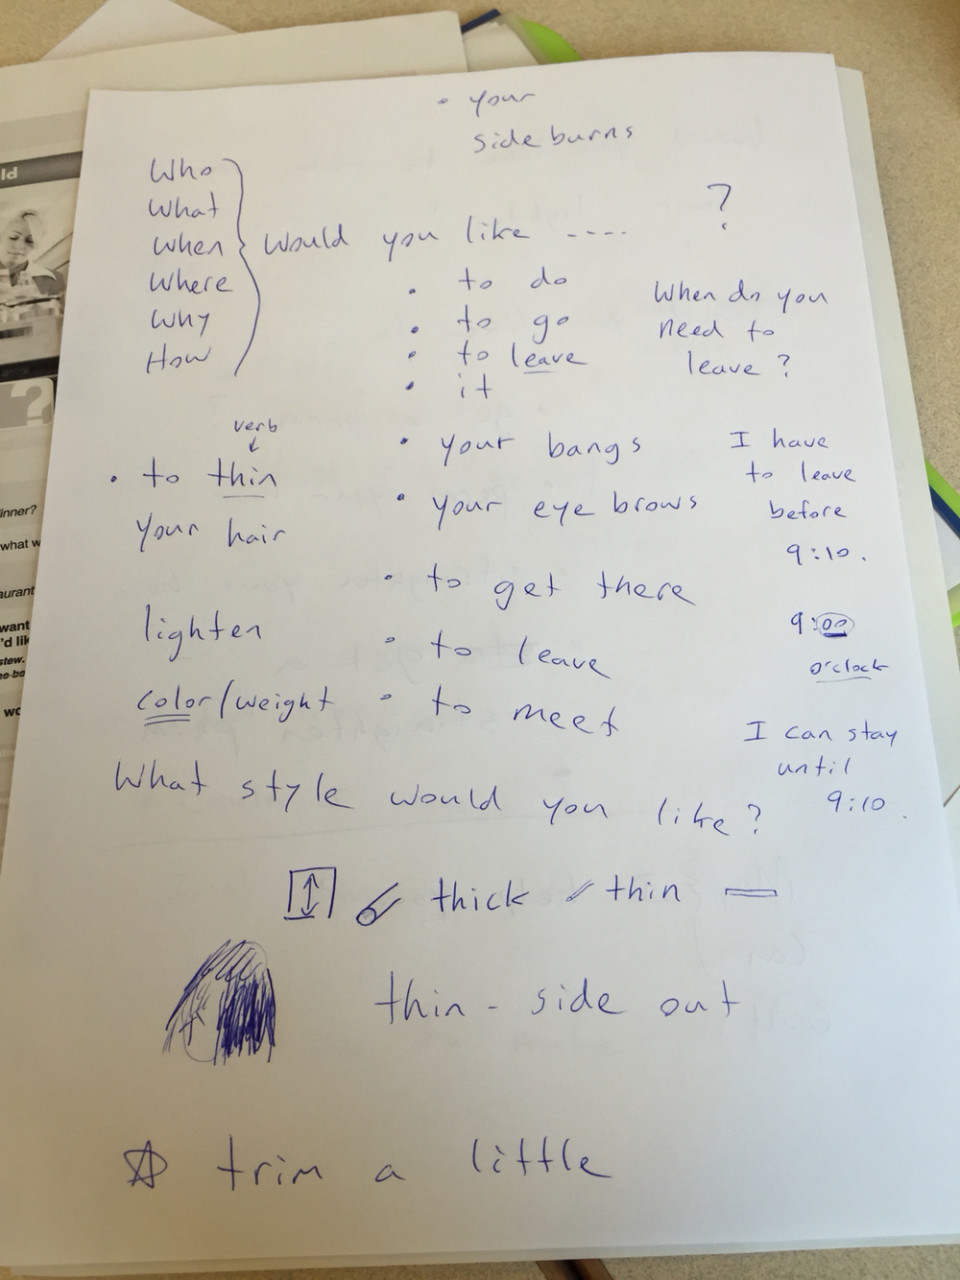 • your
side burns
Who
What
When
Where
Why
How
would you like ---- ?
• to do
• to go
• to leave
• it
When do you
need to
leave ?
• your bangs
• your eye brows
• to get there
• to leave
• to meet
verb
• to thin
your hair
lighten
color/weight
I have
to leave
before
9:10.
9:00
o'clock
I can stay
until
9:10.
What style would you like?
thick thin
thin - side out
trim a little
ld
?
inner?
what w
aurant
want
'd lik
stew.
wo